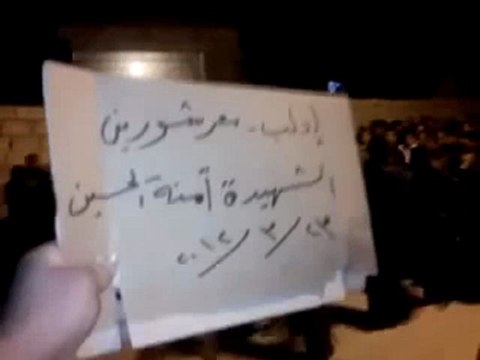 إدلب - معرشورين
الشهيدة آمنة الحسين
٢٣/٣/٢٠١٢